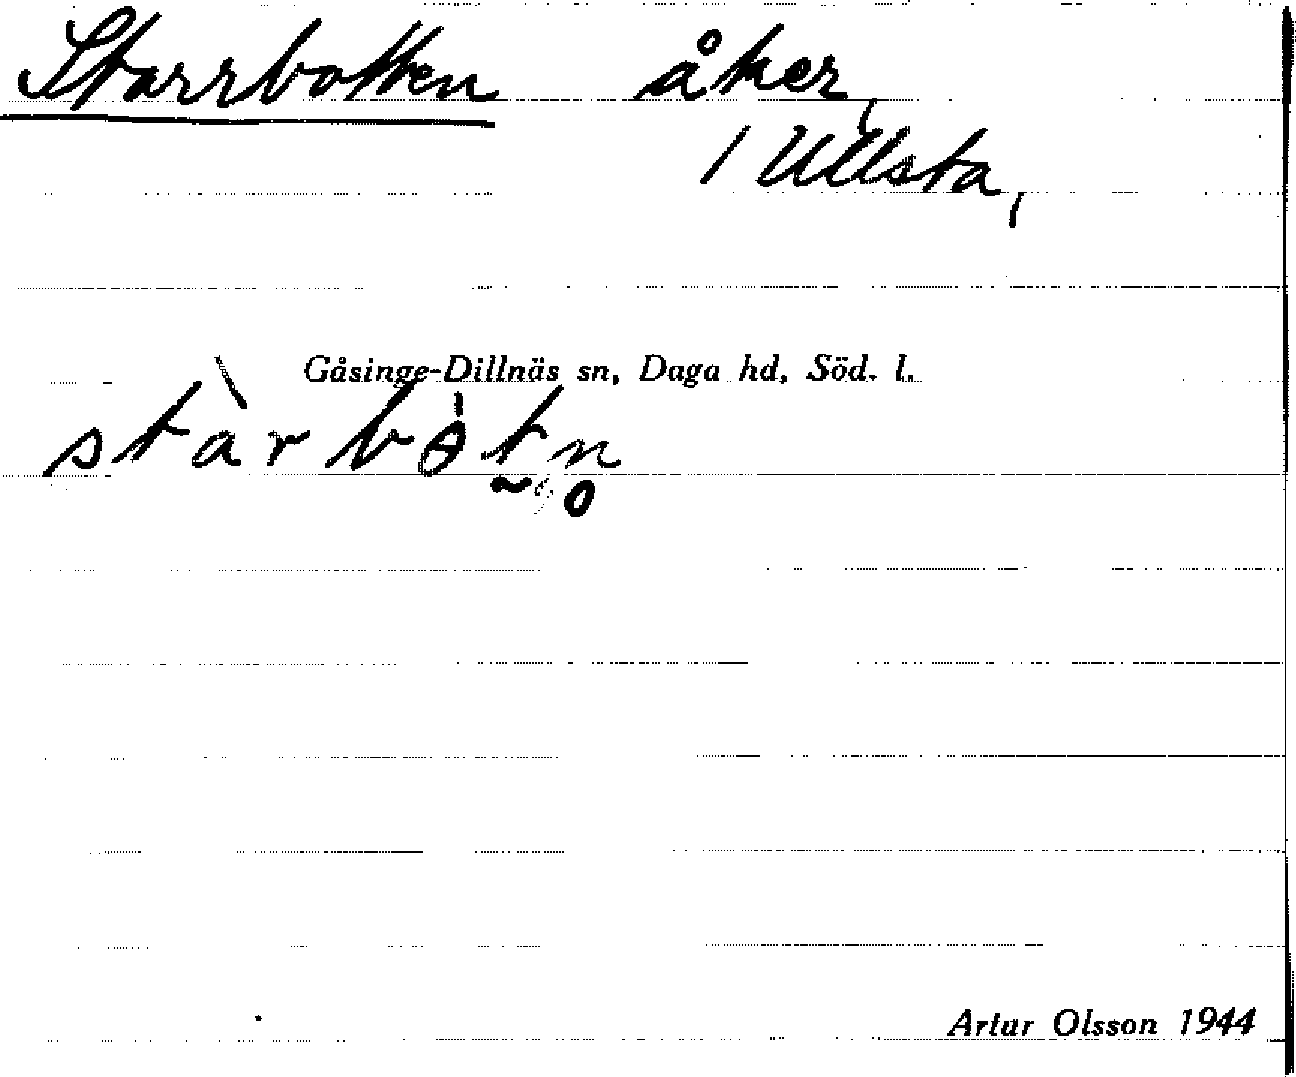 Starrbotten åker,
1 Ullsta,
Gåsinge-Dillnäs sn, Daga hd, Söd. l.
stàrbòt̰n̥
Artur Olsson 1944